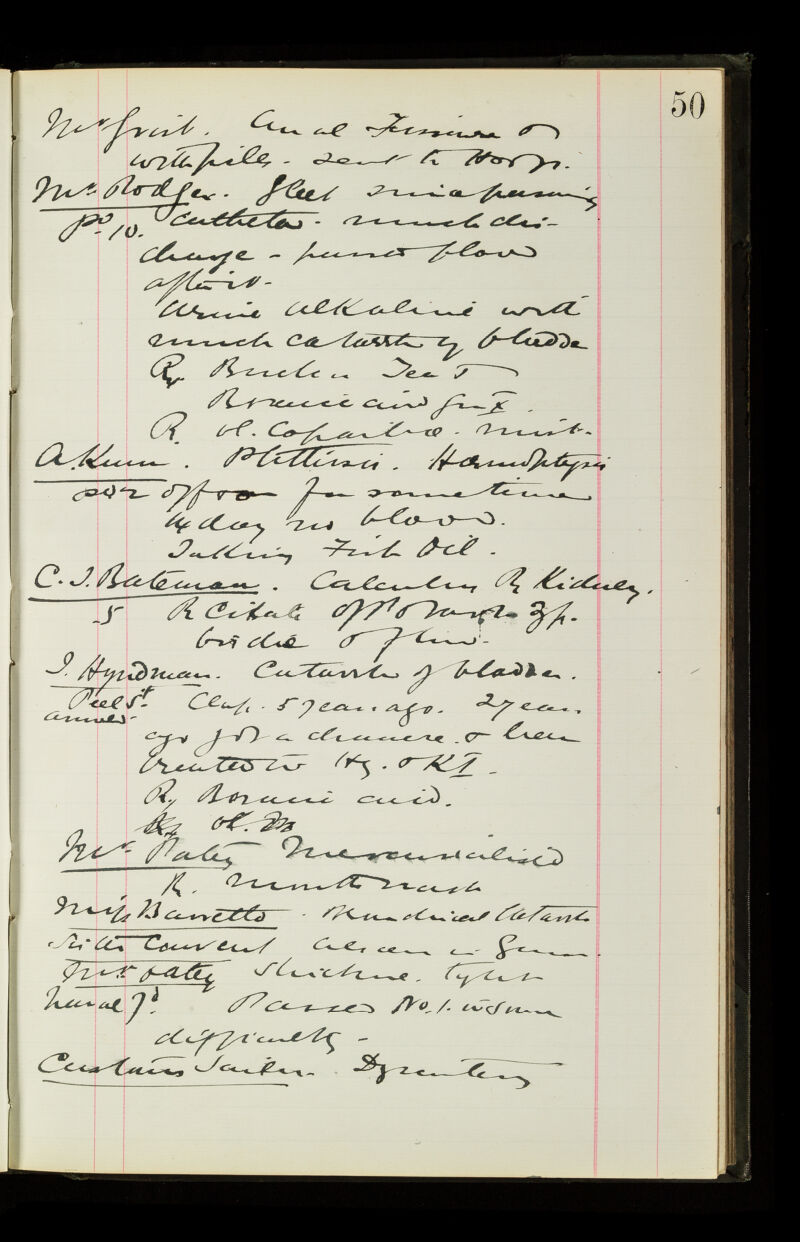 50
Mr Grist. Anal Fissure &
with piles - sent to Hosp.
Mr Rodger. Gleet since passing
pd 10. catheter - much dis-
charge - passed blood
after it -
Urine alkaline with
much catarrh of bladder
Rx Buchu Tea
Boracic acid gr X.
R. ol. Copaibae mist.
A. Kum. Phthisis. Haemoptysis
for sometime
day no blood.
Taking Fish Oil.
C. J. Bateman. Calculus R Kidney.
5 R Citrate of Potash
J. Hyndman. Catarrh of bladder.
Peel St Clap. 5 years ago. 2 years
ago got a chancre & been
treated w Hg. & KI.
Rx Boracic acid.
Mr Patey Mercurialised
R. mouth wash
Miss Barretto. Catarrh
Convent
Mr Patey Stricture. tight
Naval Yd. Passed No. 1. with some
difficulty -
Customs Sailor. Dysentery